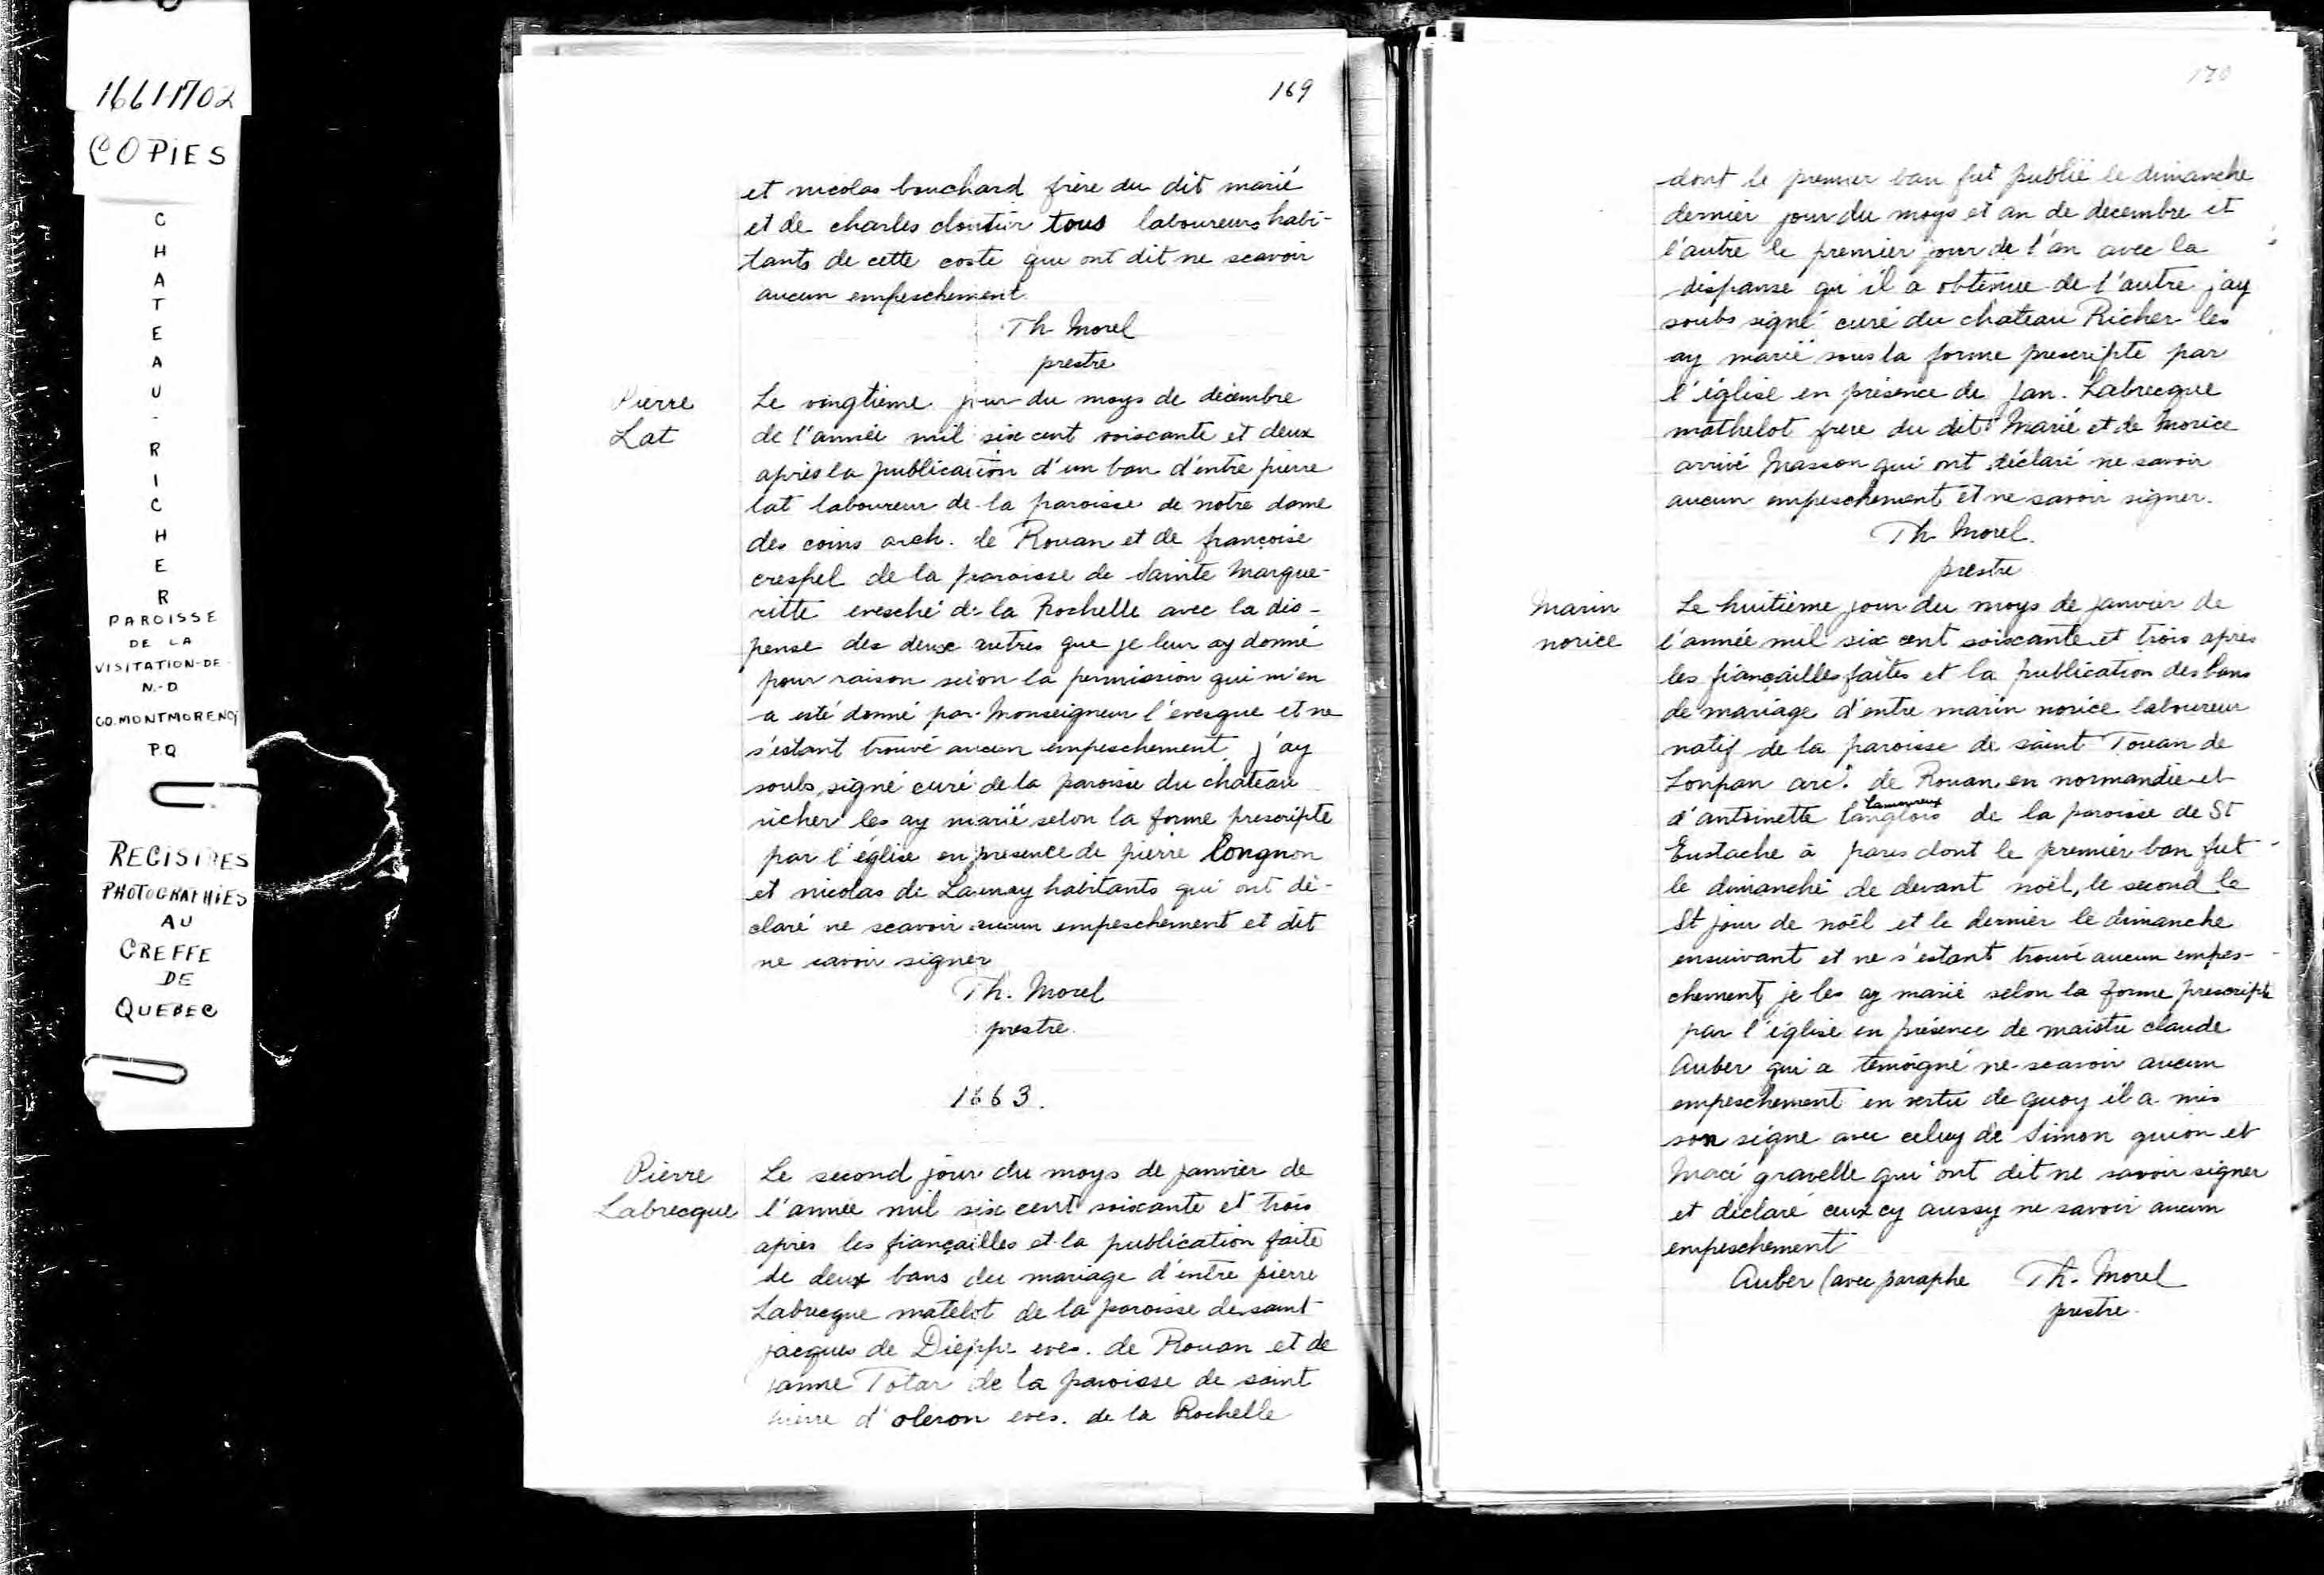 1661-1702
COPIES
CHATEAU-RICHER
PAROISSE
DE LA
VISITATION-DE-
N.-D
CO. MONTMORENCY
P.Q
REGISTRES
PHOTOGRAPHIES
AU
GREFFE
DE
QUEBEC
169
et nicolas bouchard frère du dit marié
et de charles cloutier tous laboureurs habi-
tants de cette coste qui ont dit ne scavoir
aucun empeschement.
Th Morel
prestre
Pierre
Lat
Le vingtieme jour du moys de décembre
de l'année mil six cent soiscante et deux
après la publication d'un ban d'entre pierre
lat laboureur de la paroisse de notre dame
des coins arch. de Rouan et de françoise
crespel de la paroisse de Sainte Margue-
ritte evesché de la Rochelle avec la dis-
pense des deux autres que je leur ay donné
pour raison selon la permission qui m'en
a esté donné par Monseigneur l'evesque et ne
s'estant trouvé aucun empeschement j'ay
soubs signé curé de la paroisse du chateau
richer les ay marié selon la forme prescripte
par l'église en presence de pierre Longnon
et nicolas de Launay habitants qui ont dé-
claré ne scavoir aucun empeschement et dit
ne savoir signer
Th. Morel
prestre.
1663.
Pierre
Labrecque
Le second jour du moys de janvier de
l'année mil six cent soixante et trois
après les fiançailles et la publication faite
de deux bans du mariage d'entre pierre
Labrecque matelot de la paroisse de saint
jacques de Dieppe eves. de Rouan et de
janne Totar de la paroisse de saint
pierre d'oleron eves. de la Rochelle
170
dont le premier ban fut publié le dimanche
dernier jour du moys et an de decembre et
l'autre le premier jour de l'an avec la
dispanse qu'il a obtenue de l'autre j'ay
soubs signé curé du chateau Richer les
ay marié sous la forme prescripte par
l'église en présence de Jan. Labrecque
mathelot frere du dit Marié et de Morice
arrivé Masson qui ont déclaré ne savoir
aucun empeschement et ne savoir signer.
Th Morel.
prestre
Marin
norice
Le huitième jour du moys de janvier de
l'année mil six cent soixante et trois apres
les fiançailles faites et la publication des bans
de mariage d'entre marin norice laboureur
natif de la paroisse de saint Touan de
Lonpan arc. de Rouan en normandie et
d'antoinette langlois Lamoureux de la paroisse de St
Eustache à paris dont le premier ban fut
le dimanche de devant noël, le second le
St jour de noël et le dernier le dimanche
ensuivant et ne s'estant trouvé aucun empes-
chement, je les ay marié selon la forme prescripte
par l'église en présence de maistre claude
Auber qui a temoigné ne scavoir aucun
empeschement en vertu de quoy il a mis
son signe avec celuy de Simon guion et
Macé gravelle qui ont dit ne savoir signer
et déclaré ceux cy aussy ne savoir aucun
empeschement
Auber (avec paraphe Th. Morel
prestre.